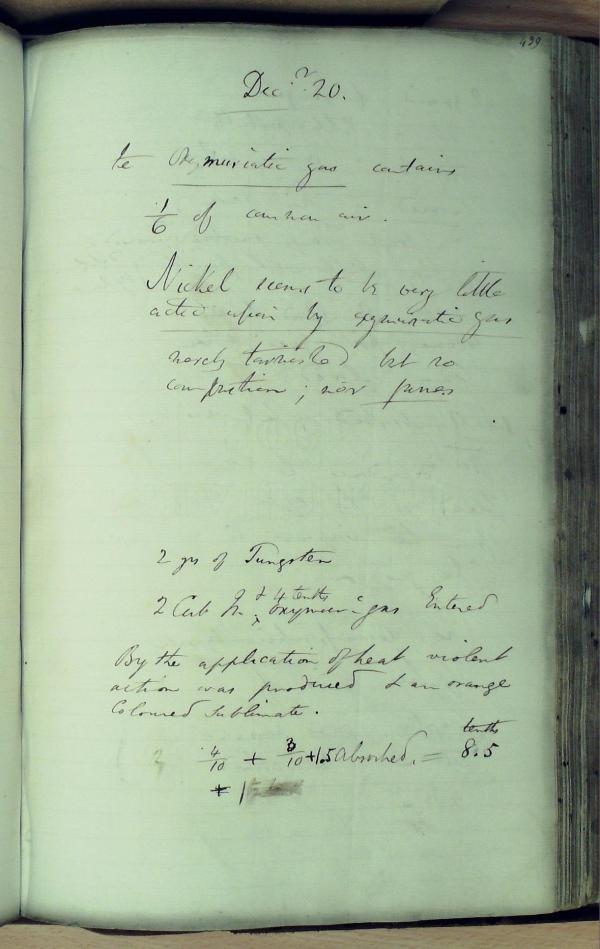 439
Decr. 20.
te Oxymuriatic gas contains
1/6 of common air.
Nickel seems to be very little
acted upon by oxymuriatic gas
merely tarnished but no
combustion; nor fumes
2 grs of Tungsten
2 Cub In. & 4 tenths oxymurc gas Entered
By the application of heat violent
action was produced & an orange
Coloured Sublimate.
tenths
4/10 + 3/10 + 1.5 Absorbed. = 8.5
+ 1